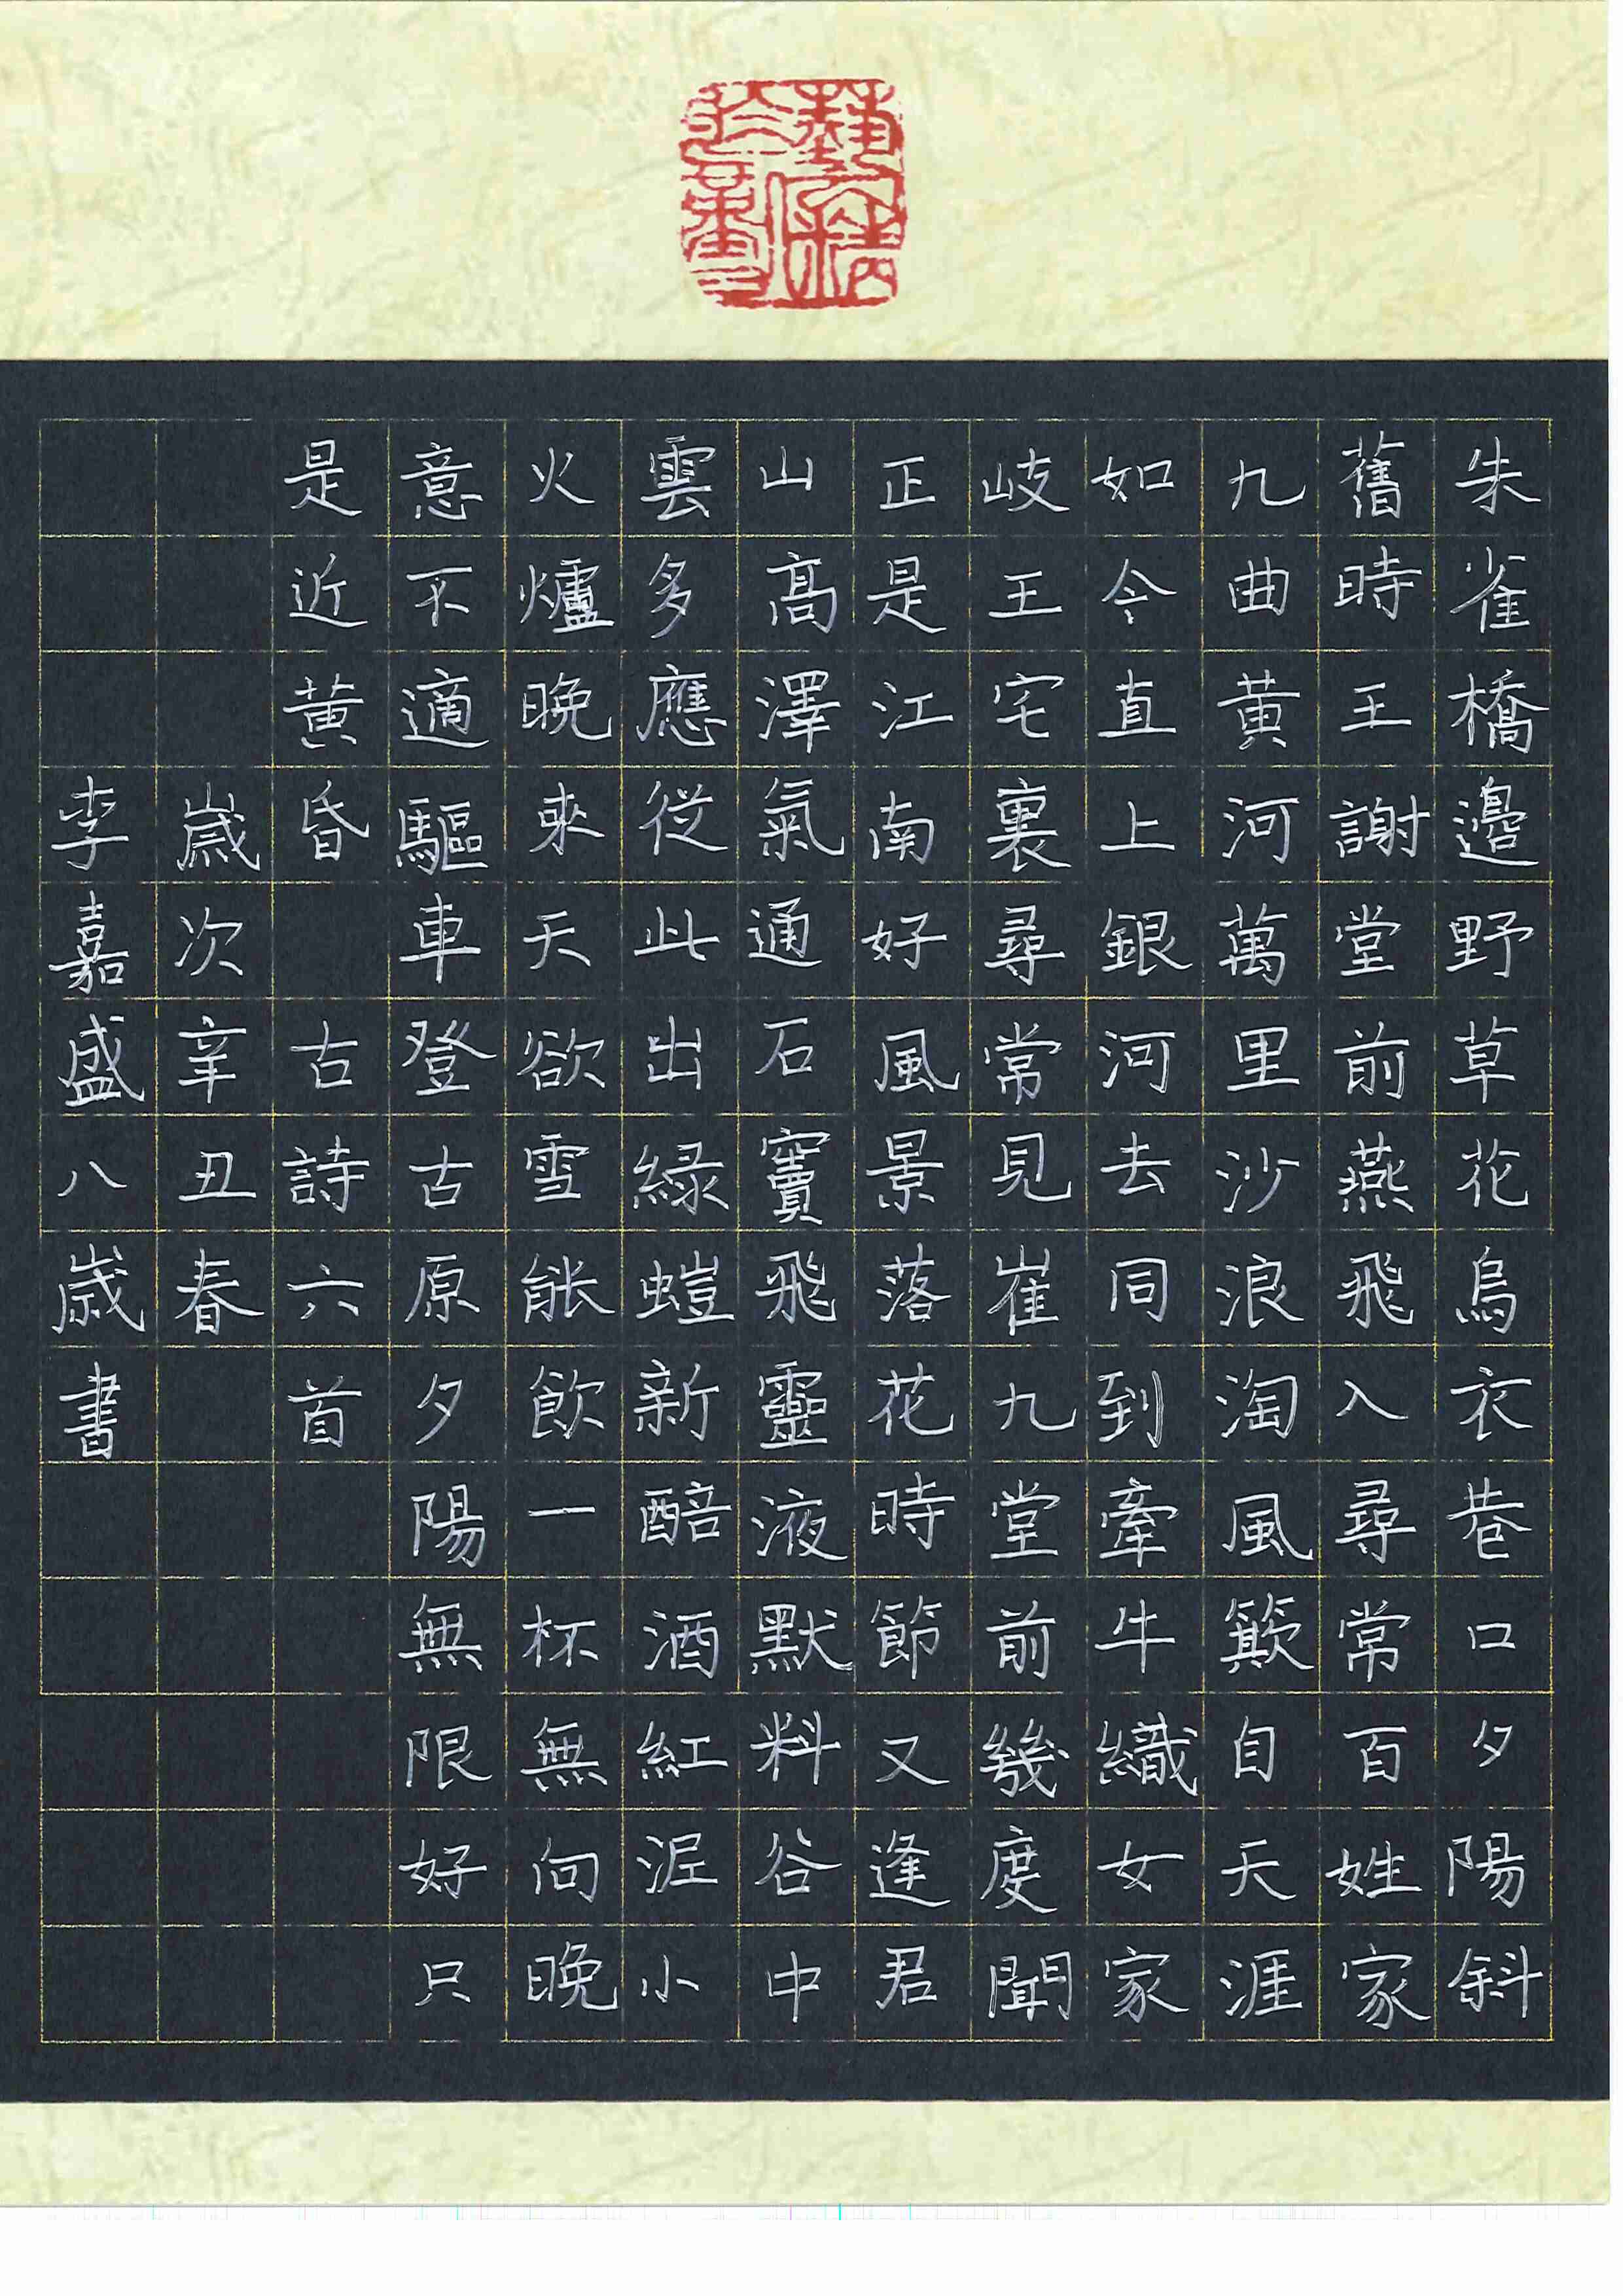 朱雀橋邊野草花烏衣巷口夕陽斜
舊時王謝堂前燕飛入尋常百姓家
九曲黃河萬里沙浪淘風簸自天涯
如今直上銀河去同到牽牛織女家
岐王宅裏尋常見崔九堂前幾度聞
正是江南好風景落花時節又逢君
山高澤氣通石竇飛靈液默料谷中
雲多應從此出綠螘新醅酒紅泥小
火爐晚來天欲雪能飲一杯無向晚
意不適驅車登古原夕陽無限好只
是近黃昏 古詩六首
歲次辛丑春
李嘉盛八歲書